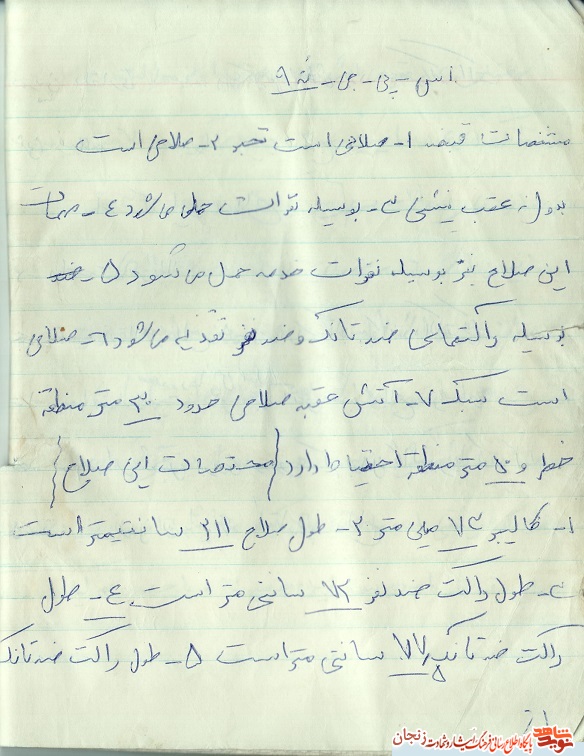 اس - پی - جی - نُه ۹
مشخصات قبضه ۱- صلاحی است ۲- صلاحی است
بدون عقب نشینی ۳- بوسیله نفرات حمل می شود ٤- مهمات
این صلاح نیز بوسیله نفرات خدمه حمل می شود ۵-
بوسیله راکتهای ضد تانک و ضد نفر تغذیه می شود ٦- صلاحی
است سبک ۷- آتش عقبه صلاحی حدود ۳۰ متر منطقه
خطر و متر منطقه احتیاط دارد (مختصات این صلاح)
۱- کالیبر ۷۳ میلی متر ۲- طول صلاح ۲۱۱ سانتیمتر است
۳- طول راکت ضد نفر سانتی متر است ٤- طول
راکت ضد تانک ۷۷ سانتی متر است ۵- طول راکت ضد تانک
نوید شاهد
پایگاه اطلاع رسانی فرهنگ ایثار و شهادت زنجان